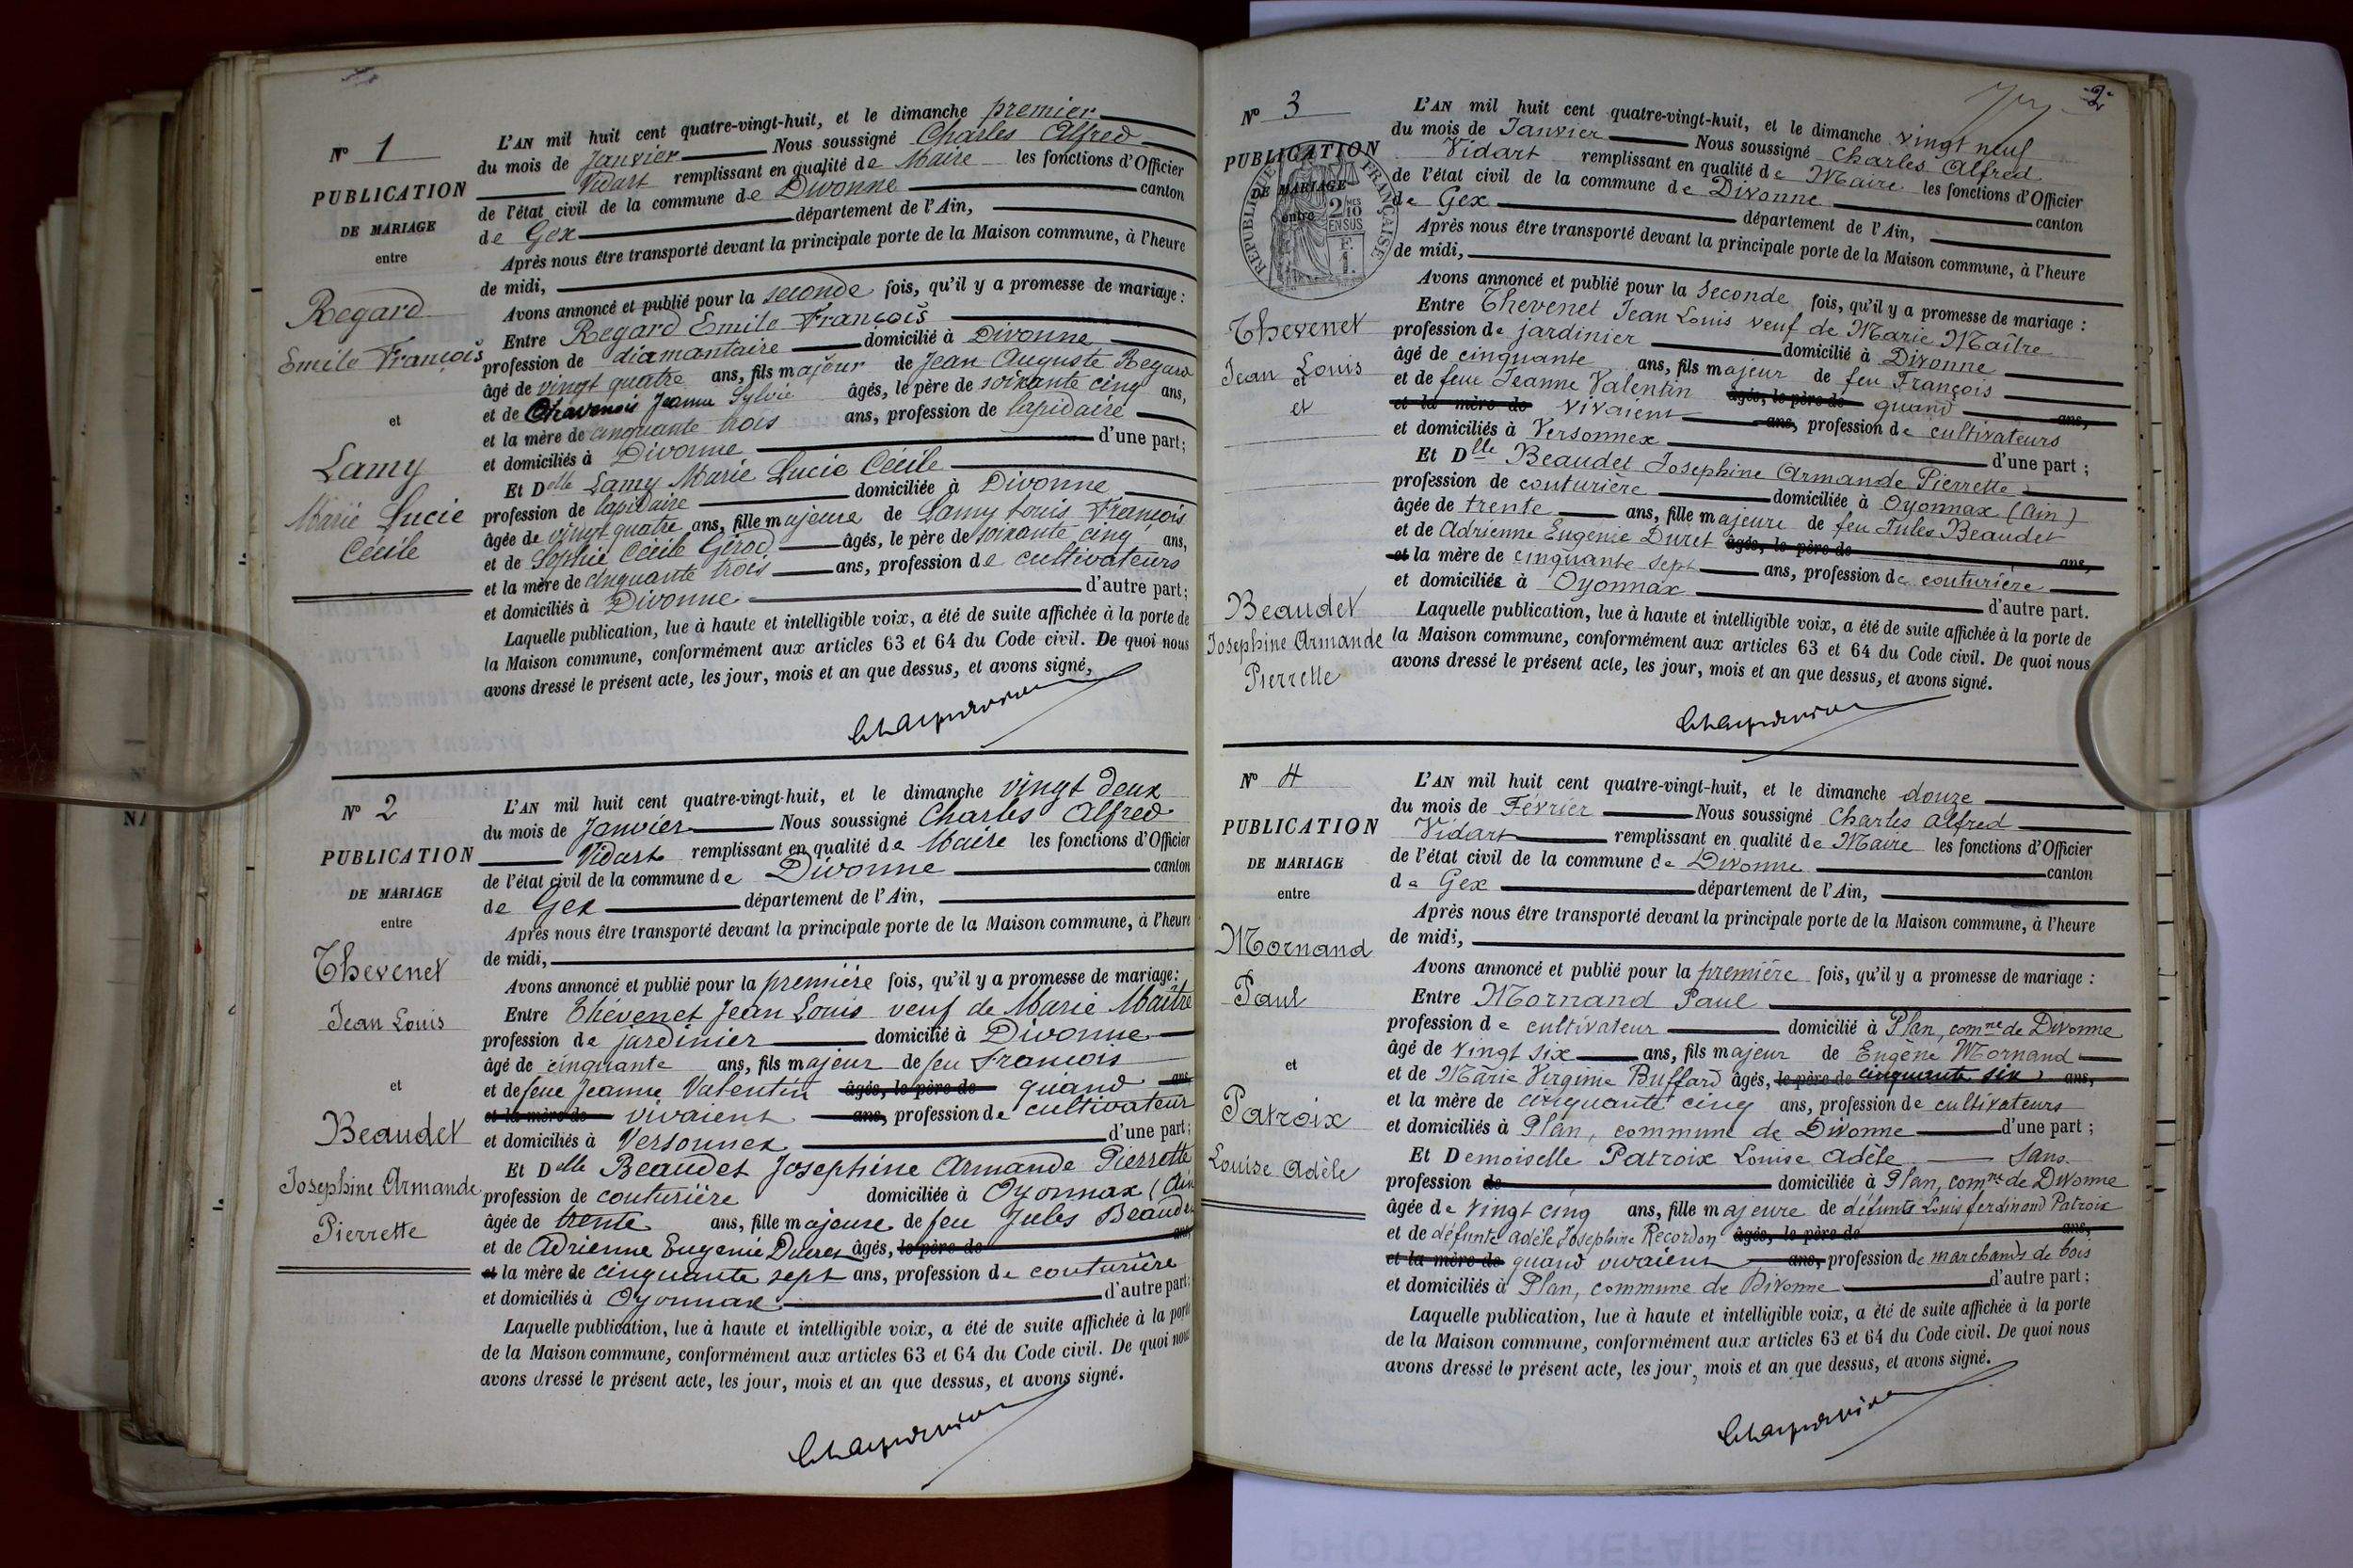 Nº 1
PUBLICATION
DE MARIAGE
entre
Regard
Emile François
et
Lamy
Marie Lucie
Cécile
L'AN mil huit cent quatre-vingt-huit, et le dimanche premier
du mois de Janvier Nous soussigné Charles Alfred
Vidart remplissant en qualité de Maire les fonctions d'Officier
de l'état civil de la commune de Divonne canton
de Gex département de l'Ain,
Après nous être transporté devant la principale porte de la Maison commune, à l'heure
de midi,
Avons annoncé et publié pour la seconde fois, qu'il y a promesse de mariage :
Entre Regard Emile François
profession de diamantaire domicilié à Divonne
âgé de vingt quatre ans, fils majeur de Jean Auguste Regard
et de Chavanois Jeanne Sylvie âgés, le père de soixante cinq ans,
et la mère de cinquante trois ans, profession de lapidaire
et domiciliés à Divonne d'une part;
Et Delle Lamy Marie Lucie Cécile
profession de lapidaire domiciliée à Divonne
âgée de vingt quatre ans, fille majeure de Lamy Louis François
et de Sophie Cécile Girod âgés, le père de soixante cinq ans,
et la mère de cinquante trois ans, profession de cultivateurs
et domiciliés à Divonne d'autre part;
Laquelle publication, lue à haute et intelligible voix, a été de suite affichée à la porte de
la Maison commune, conformément aux articles 63 et 64 du Code civil. De quoi nous
avons dressé le présent acte, les jour, mois et an que dessus, et avons signé,
Nº 2
PUBLICATION
DE MARIAGE
entre
Thevenet
Jean Louis
et
Beaudet
Josephine Armande
Pierrette
L'AN mil huit cent quatre-vingt-huit, et le dimanche vingt deux
du mois de Janvier Nous soussigné Charles Alfred
Vidart remplissant en qualité de Maire les fonctions d'Officier
de l'état civil de la commune de Divonne canton
de Gex département de l'Ain,
Après nous être transporté devant la principale porte de la Maison commune, à l'heure
de midi,
Avons annoncé et publié pour la première fois, qu'il y a promesse de mariage:
Entre Thévenet Jean Louis veuf de Marie Maître
profession de jardinier domicilié à Divonne
âgé de cinquante ans, fils majeur de feu François
et de feue Jeanne Valentin âgés, le père de quand ans,
et la mère de vivaient ans, profession de cultivateur
et domiciliés à Versonnex d'une part;
Et Delle Beaudet Josephine Armande Pierrette
profession de couturière domiciliée à Oyonnax (Ain
âgée de trente ans, fille majeure de feu Jules Beaudet
et de Adrienne Eugenie Duret âgés, le père de ans,
et la mère de cinquante sept ans, profession de couturière
et domiciliés à Oyonnax d'autre part;
Laquelle publication, lue à haute et intelligible voix, a été de suite affichée à la porte
de la Maison commune, conformément aux articles 63 et 64 du Code civil. De quoi nous
avons dressé le présent acte, les jour, mois et an que dessus, et avons signé.
2
Nº 3
PUBLICATION
DE MARIAGE
entre
REPUBLIQUE FRANÇAISE
2 MES
10
EN SUS
F.
1.
Thevenet
Jean Louis
et
et
Beaudet
Josephine Armande
Pierrette
L'AN mil huit cent quatre-vingt-huit, et le dimanche vingt neuf
du mois de Janvier Nous soussigné Charles Alfred
Vidart remplissant en qualité de Maire les fonctions d'Officier
de l'état civil de la commune de Divonne canton
de Gex département de l'Ain,
Après nous être transporté devant la principale porte de la Maison commune, à l'heure
de midi,
Avons annoncé et publié pour la seconde fois, qu'il y a promesse de mariage :
Entre Thevenet Jean Louis veuf de Marie Maître
profession de jardinier domicilié à Divonne
âgé de cinquante ans, fils majeur de feu François
et de feue Jeanne Valentin âgés, le père de quand ans,
et la mère de vivaient ans, profession de cultivateurs
et domiciliés à Versonnex d'une part ;
Et Dlle Beaudet Josephine Armande Pierrette
profession de couturière domiciliée à Oyonnax (Ain)
âgée de trente ans, fille majeure de feu Jules Beaudet
et de Adrienne Eugenie Duret âgés, le père de ans,
et la mère de cinquante sept ans, profession de couturière
et domiciliés à Oyonnax d'autre part.
Laquelle publication, lue à haute et intelligible voix, a été de suite affichée à la porte de
la Maison commune, conformément aux articles 63 et 64 du Code civil. De quoi nous
avons dressé le présent acte, les jour, mois et an que dessus, et avons signé.
Nº 4
PUBLICATION
DE MARIAGE
entre
Mornand
Paul
et
Patroix
Louise Adèle
L'AN mil huit cent quatre-vingt-huit, et le dimanche douze
du mois de Février Nous soussigné Charles Alfred
Vidart remplissant en qualité de Maire les fonctions d'Officier
de l'état civil de la commune de Divonne canton
de Gex département de l'Ain,
Après nous être transporté devant la principale porte de la Maison commune, à l'heure
de midi,
Avons annoncé et publié pour la première fois, qu'il y a promesse de mariage :
Entre Mornand Paul
profession de cultivateur domicilié à Plan, comne de Divonne
âgé de vingt six ans, fils majeur de Eugène Mornand
et de Marie Virginie Buffard âgés, le père de cinquante six ans,
et la mère de cinquante cinq ans, profession de cultivateurs
et domiciliés à Plan, commune de Divonne d'une part ;
Et Demoiselle Patroix Louise Adèle Sans
profession de domiciliée à Plan, comne de Divonne
âgée de vingt cinq ans, fille majeure de défunts Louis ferdinand Patroix
et de défunte Adèle Josephine Recordon âgés, le père de ans,
et la mère de quand vivaient ans, profession de marchands de bois
et domiciliés à Plan, commune de Divonne d'autre part ;
Laquelle publication, lue à haute et intelligible voix, a été de suite affichée à la porte
de la Maison commune, conformément aux articles 63 et 64 du Code civil. De quoi nous
avons dressé le présent acte, les jour, mois et an que dessus, et avons signé.